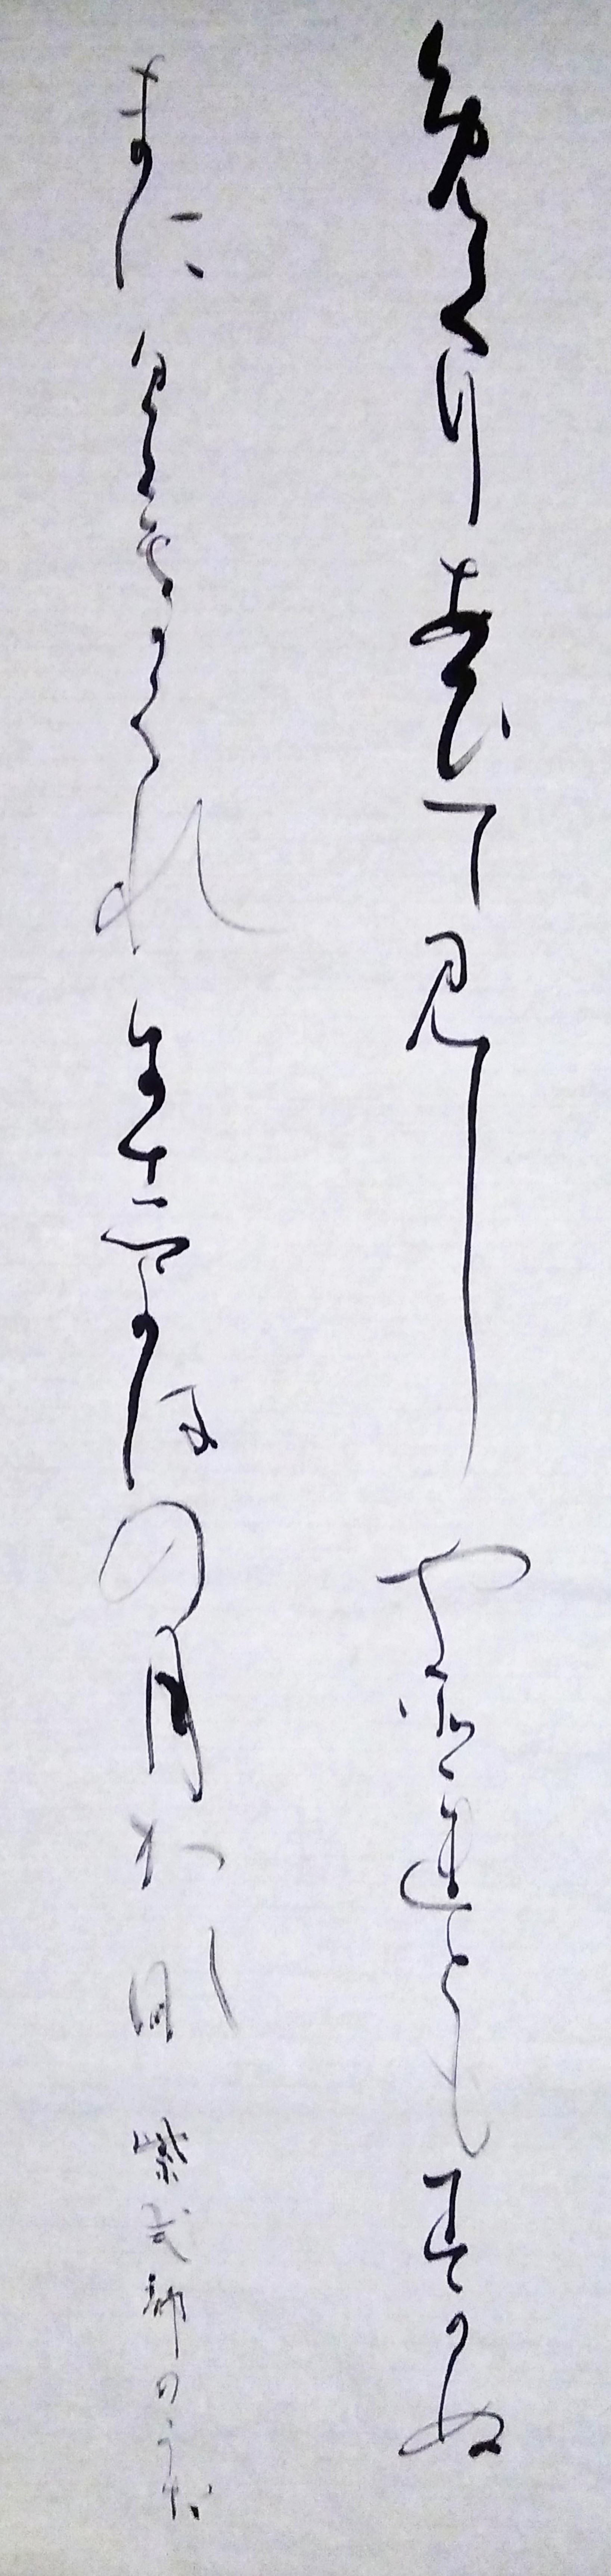 めくりあひて見しやそれともわかぬ
まにくもかくれにしよはの月かな 紫式部のうた